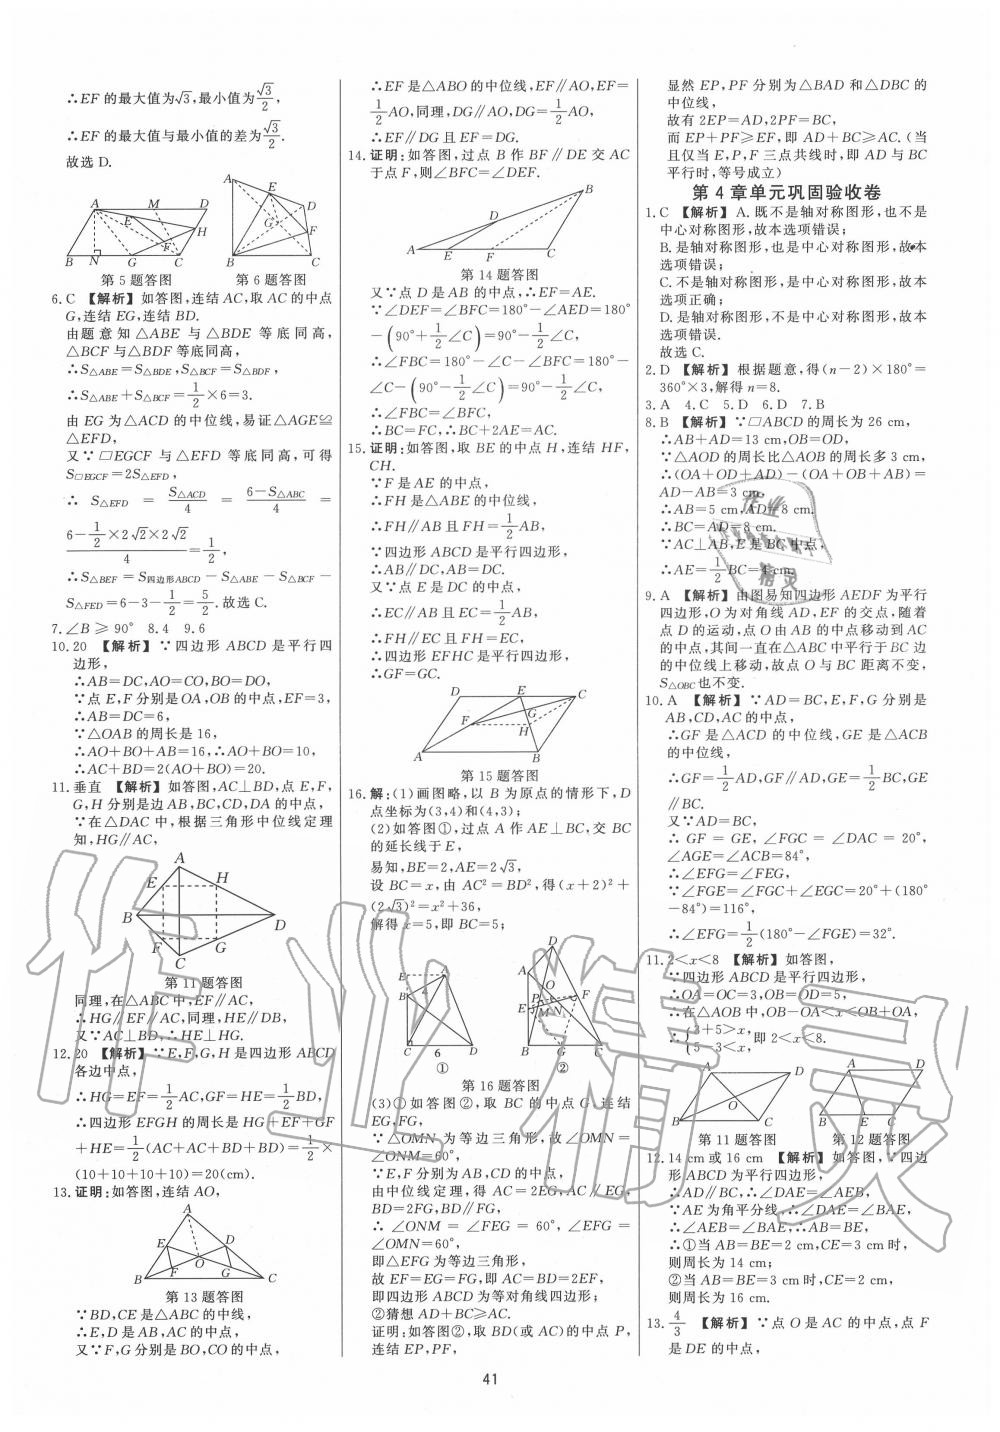 ∴EF 的最大值为√3,最小值为√3/2,
∴EF 的最大值与最小值的差为√3/2.
故选 D.
A M D
E F H
B N G C
第 5 题答图
A E D
G F
B C
第 6 题答图
6.C 【解析】如答图,连结 AC,取 AC 的中点
G,连结 EG,连结 BD.
由题意知 △ABE 与 △BDE 等底同高,
△BCF 与△BDF 等底同高,
∴S△ABE=S△BDE,S△BCF=S△BDF,
∴S△ABE+S△BCF=1/2×6=3.
由 EG 为△ACD 的中位线,易证△AGE≌
△EFD,
又∵ □EGCF 与△EFD 等底同高,可得
S□EGCF=2S△EFD,
∴ S△EFD = S△ACD/4 = (6-S△ABC)/4 =
(6-1/2×2√2×2√2)/4=1/2,
∴S△BEF=S四边形ABCD-S△ABE-S△BCF-
S△FED=6-3-1/2=5/2.故选 C.
7.∠B≥90° 8.4 9.6
10.20 【解析】∵四边形 ABCD 是平行四
边形,
∴AB=DC,AO=CO,BO=DO,
∵点 E,F 分别是 OA,OB 的中点,EF=3,
∴AB=DC=6,
∵△OAB 的周长是 16,
∴AO+BO+AB=16,∴AO+BO=10,
∴AC+BD=2(AO+BO)=20.
11.垂直 【解析】如答图,AC⊥BD,点 E,F,
G,H 分别是边 AB,BC,CD,DA 的中点,
∵在△DAC 中,根据三角形中位线定理
知,HG∥AC,
A
E H
B D
F G
C
第 11 题答图
同理,在△ABC 中,EF∥AC,
∴HG∥EF∥AC,同理,HE∥DB,
又∵AC⊥BD,∴HE⊥HG.
12.20 【解析】∵E,F,G,H 是四边形 ABCD
各边中点,
∴HG=EF=1/2AC,GF=HE=1/2BD,
∴四边形 EFGH 的周长是 HG+EF+GF
+HE=1/2(AC+AC+BD+BD)=1/2×
(10+10+10+10)=20(cm).
13.证明:如答图,连结 AO,
A
E D
O
F G
B C
第 13 题答图
∵BD,CE 是△ABC 的中线,
∴E,D 是 AB,AC 的中点,
又∵F,G 分别是 BO,CO 的中点,
∴EF 是△ABO 的中位线,EF∥AO,EF=
1/2AO,同理,DG∥AO,DG=1/2AO,
∴EF∥DG 且 EF=DG.
14.证明:如答图,过点 B 作 BF∥DE 交 AC
于点 F,则∠BFC=∠DEF.
B
D
A E F C
第 14 题答图
又∵点 D 是 AB 的中点,∴EF=AE.
∵∠DEF=∠BFC=180°-∠AED=180°
-(90°+1/2∠C)=90°-1/2∠C,
∴∠FBC=180°-∠C-∠BFC=180°-
∠C-(90°-1/2∠C)=90°-1/2∠C,
∴∠FBC=∠BFC,
∴BC=FC,∴BC+2AE=AC.
15.证明:如答图,取 BE 的中点 H,连结 HF,
CH.
∵F 是 AE 的中点,
∴FH 是△ABE 的中位线,
∴FH∥AB 且 FH=1/2AB,
∵四边形 ABCD 是平行四边形,
∴AB∥DC,AB=DC.
又∵点 E 是 DC 的中点,
∴EC∥AB 且 EC=1/2AB,
∴FH∥EC 且 FH=EC,
∴四边形 EFHC 是平行四边形,
∴GF=GC.
D E C
F G
H
A B
第 15 题答图
16.解:(1)画图略,以 B 为原点的情形下,D
点坐标为(3,4)和(4,3);
(2)如答图①,过点 A 作 AE⊥BC,交 BC
的延长线于 E,
易知,BE=2,AE=2√3,
设 BC=x,由 AC²=BD²,得(x+2)²+
(2√3)²=x²+36,
解得 x=5,即 BC=5;
E A
B 4
C 6 D
①
D
A
O
P F
E M N
B G C
②
第 16 题答图
(3)①如答图②,取 BC 的中点 G,连结
EG,FG,
∵△OMN 为等边三角形,故∠OMN=
∠ONM=60°,
∵E,F 分别为 AB,CD 的中点,
由中位线定理,得 AC=2EG,AC∥EG,
BD=2FG,BD∥FG,
∴ ∠ONM = ∠FEG = 60°,∠EFG =
∠OMN=60°,
即△EFG 为等边三角形,
故 EF=EG=FG,即 AC=BD=2EF,
即四边形 ABCD 为等对角线四边形;
②猜想 AD+BC≥AC.
证明:如答图②,取 BD(或 AC)的中点 P,
连结 EP,PF,
显然 EP,PF 分别为△BAD 和△DBC 的
中位线,
故有 2EP=AD,2PF=BC,
而 EP+PF≥EF,即 AD+BC≥AC.(当
且仅当 E,P,F 三点共线时,即 AD 与 BC
平行时,等号成立)
第 4 章单元巩固验收卷
1.C 【解析】A.既不是轴对称图形,也不是
中心对称图形,故本选项错误;
B.是轴对称图形,也是中心对称图形,故本
选项错误;
C.不是轴对称图形,是中心对称图形,故本
选项正确;
D.是轴对称图形,不是中心对称图形,故本
选项错误.
故选 C.
2.D 【解析】根据题意,得(n-2)×180°=
360°×3,解得 n=8.
3.A 4.C 5.D 6.D 7.B
8.B 【解析】∵□ABCD 的周长为 26 cm,
∴AB+AD=13 cm,OB=OD,
∵△AOD 的周长比△AOB 的周长多 3 cm,
∴(OA+OD+AD)-(OA+OB+AB)=
AD-AB=3 cm,
∴AB=5 cm,AD=8 cm.
∴BC=AD=8 cm.
∵AC⊥AB,E 是 BC 中点,
∴AE=1/2BC=4 cm.
9.A 【解析】由图易知四边形 AEDF 为平行
四边形,O 为对角线 AD,EF 的交点,随着
点 D 的运动,点 O 由 AB 的中点移动到 AC
的中点,其间一直在△ABC 中平行于 BC 边
的中位线上移动,故点 O 与 BC 距离不变,
S△OBC也不变.
10.A 【解析】∵AD=BC,E,F,G 分别是
AB,CD,AC 的中点,
∴GF 是△ACD 的中位线,GE 是△ACB
的中位线,
∴GF=1/2AD,GF∥AD,GE=1/2BC,GE
∥BC.
又∵AD=BC,
∴ GF = GE,∠FGC = ∠DAC = 20°,
∠AGE=∠ACB=84°,
∴∠EFG=∠FEG,
∵∠FGE=∠FGC+∠EGC=20°+(180°
-84°)=116°,
∴∠EFG=1/2(180°-∠FGE)=32°.
11.2<x<8 【解析】如答图,
∵四边形 ABCD 是平行四边形,
∴OA=OC=3,OB=OD=5,
∴在△AOB 中,OB-OA<x<OB+OA,
∴{3+5>x, 5-3<x, 即 2<x<8.
A D
O
B C
第 11 题答图
A D
B E C
第 12 题答图
12.14 cm 或 16 cm 【解析】如答图,∵四边
形 ABCD 为平行四边形,
∴AD∥BC,∴∠DAE=∠AEB,
∵AE 为角平分线,∴∠DAE=∠BAE,
∴∠AEB=∠BAE,∴AB=BE,
∴①当 AB=BE=2 cm,CE=3 cm 时,
则周长为 14 cm;
②当 AB=BE=3 cm 时,CE=2 cm,
则周长为 16 cm.
13.4/3 【解析】∵点 O 是 AC 的中点,点 F
是 DE 的中点,
41
作业精灵
作业
精灵